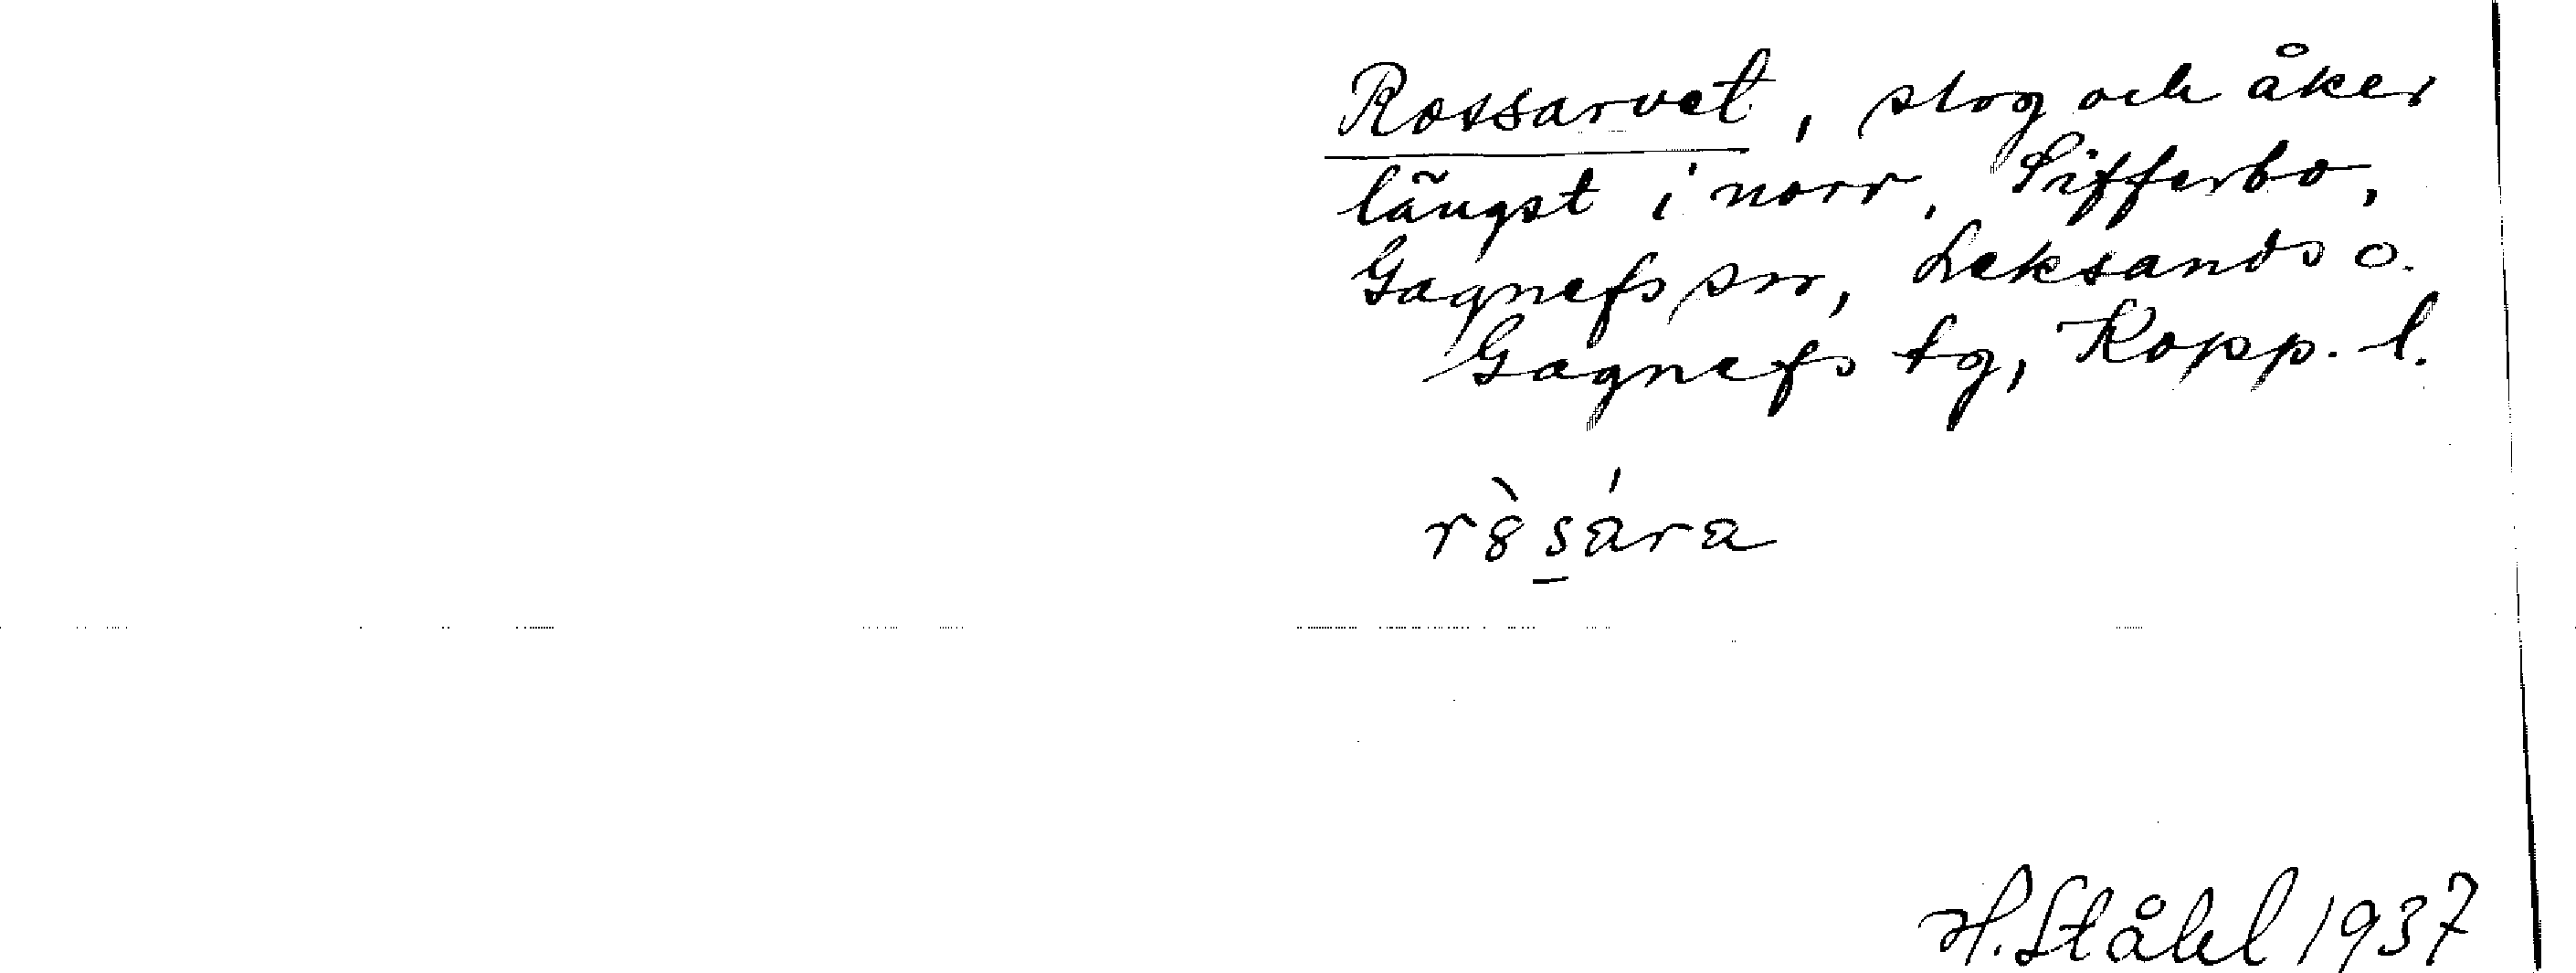 Rossarvet, slog och åker
längst i norr, Sifferbo,
Gagnefs sn, Leksands o.
Gagnefs tg, Kopp. l.
rȣ̀sára
H. Ståhl 1937